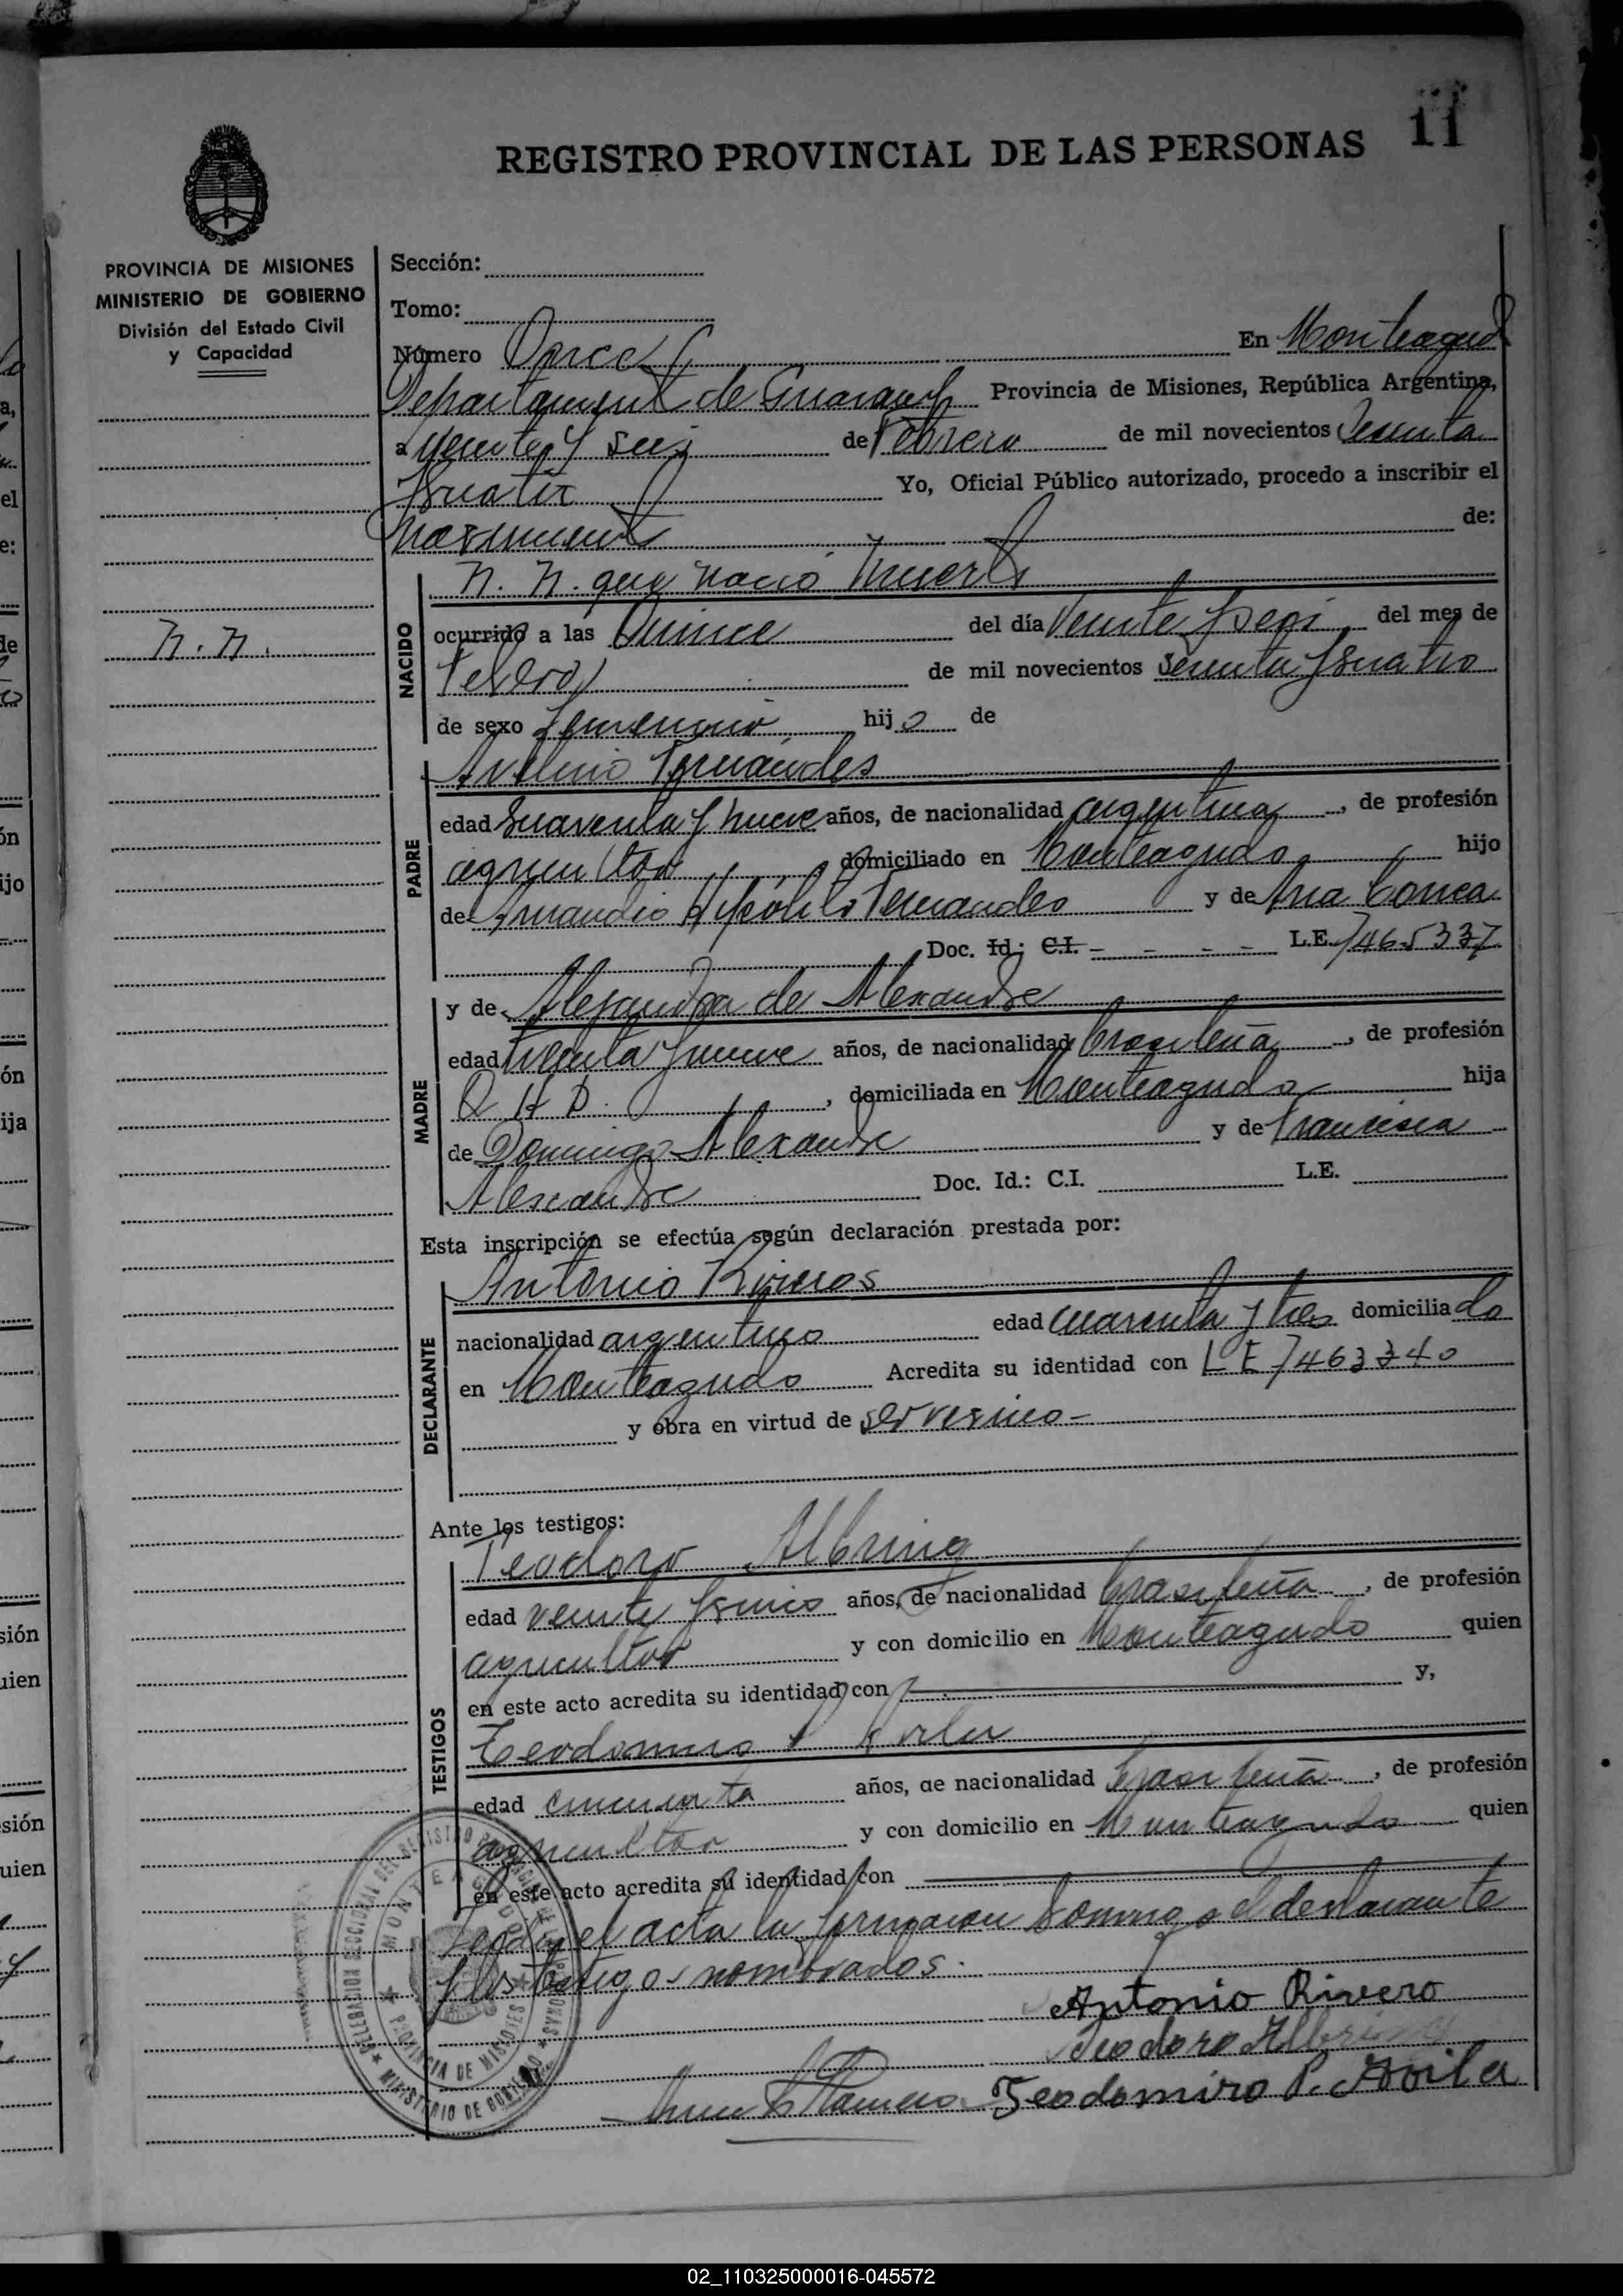 11
REGISTRO PROVINCIAL DE LAS PERSONAS
PROVINCIA DE MISIONES
MINISTERIO DE GOBIERNO
División del Estado Civil
y Capacidad
N. N.
Sección:
Tomo:
Número Once En Monteagudo
Departamento de Guaraní Provincia de Misiones, República Argentina,
a veinte y seis de Febrero de mil novecientos sesenta
y cuatro Yo, Oficial Público autorizado, procedo a inscribir el
nacimiento de:
NACIDO
N. N. que nació muerto
ocurrido a las Quince del día veinte y seis del mes de
Febrero de mil novecientos sesenta y cuatro
de sexo femenino hijo de
PADRE
Avelino Fernándes
edad cuarenta y nueve años, de nacionalidad argentina, de profesión
agricultor, domiciliado en Monteagudo hijo
de Hipólito Fernandes y de Ana Correa
Doc. Id: C.I. - - - - L.E. 7465337
MADRE
y de Alejandra de Alexandre
edad treinta y nueve años, de nacionalidad brasileña, de profesión
Q H D., domiciliada en Monteagudo hija
de Domingo Alexandre y de Francisca
Alexandre Doc. Id.: C.I. L.E.
Esta inscripción se efectúa según declaración prestada por:
DECLARANTE
Antonio Riveros
nacionalidad argentino edad cuarenta y tres domiciliado
en Monteagudo Acredita su identidad con L E 7463340
y obra en virtud de ser vecino -
Ante los testigos:
TESTIGOS
Teodoro Albring
edad veinte y cinco años, de nacionalidad brasileña, de profesión
agricultor y con domicilio en Monteagudo quien
en este acto acredita su identidad con y,
Teodomiro P Avila
edad cincuenta años, de nacionalidad brasileña, de profesión
agricultor y con domicilio en Monteagudo quien
en este acto acredita su identidad con
Leida el acta la firmaron conmigo el declarante
y los testigos nombrados.
Antonio Rivero
Teodoro Albring
Teodomiro P. Avila
DELEGACION SECCIONAL DEL REGISTRO PROVINCIAL DE LAS PERSONAS
MONTEAGUDO
PROVINCIA DE MISIONES
MINISTERIO DE GOBIERNO
ón
ijo
ón
ija
sión
uien
sión
uien
02_110325000016-045572